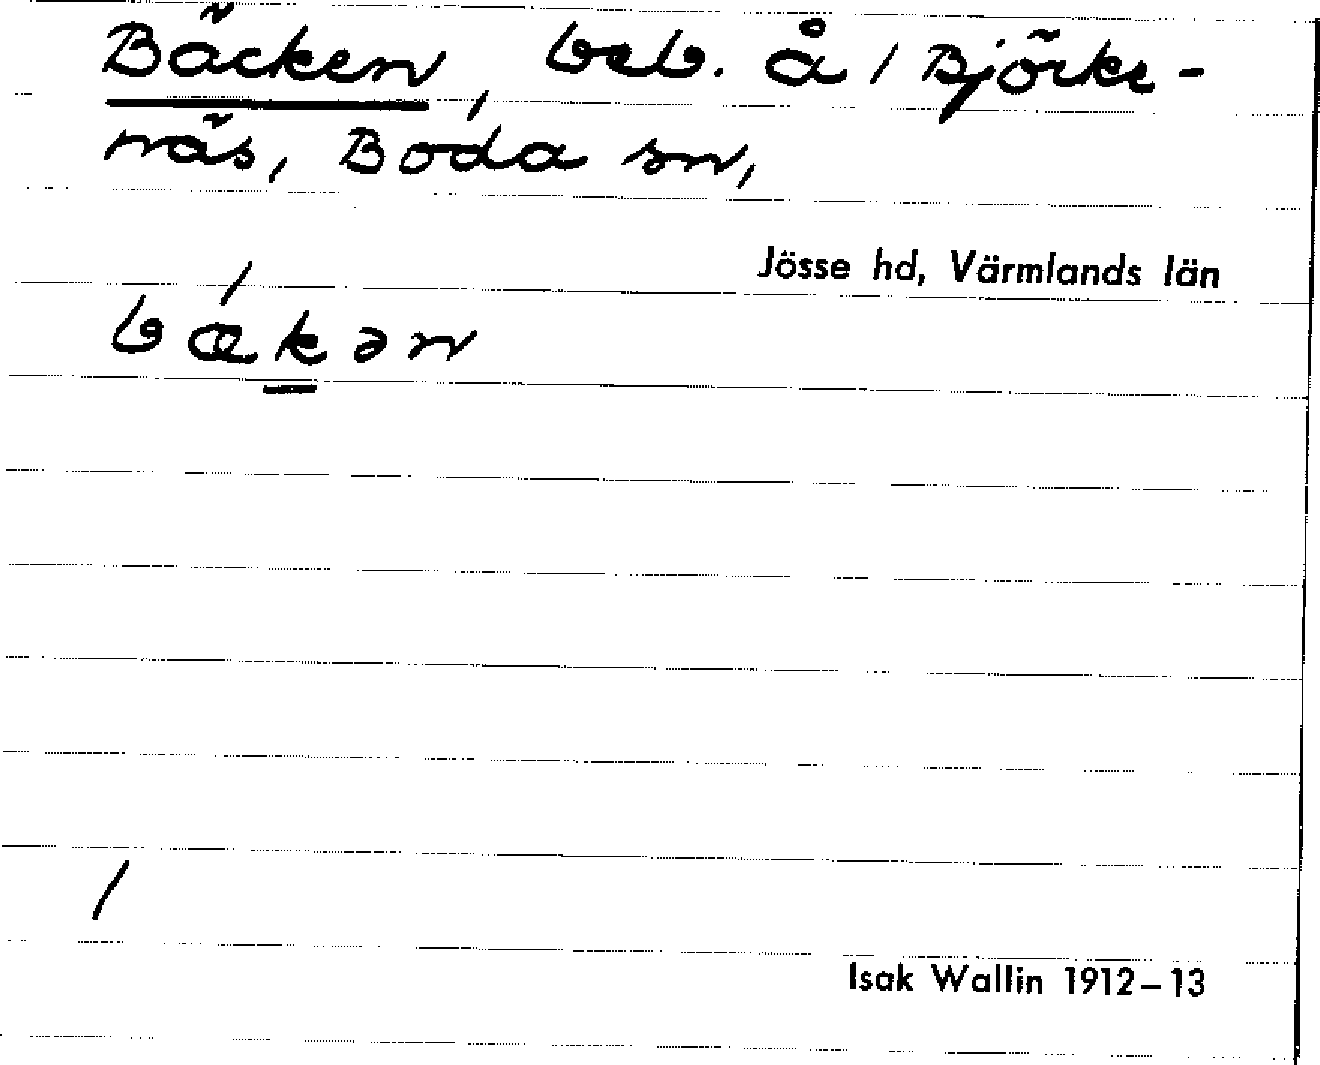 Bäcken, beb. å 1 Björke-
näs, Boda sn,
Jösse hd, Värmlands län
bǽkən
/
Isak Wallin 1912–13